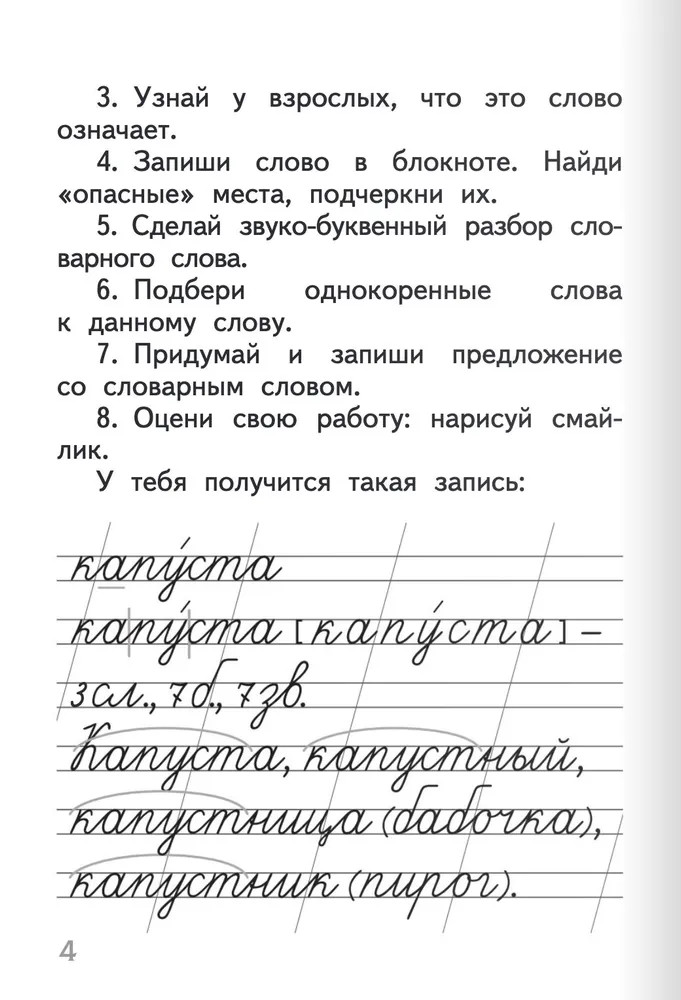 3. Узнай у взрослых, что это слово
означает.
4. Запиши слово в блокноте. Найди
«опасные» места, подчеркни их.
5. Сделай звуко-буквенный разбор сло-
варного слова.
6. Подбери однокоренные слова
к данному слову.
7. Придумай и запиши предложение
со словарным словом.
8. Оцени свою работу: нарисуй смай-
лик.
У тебя получится такая запись:
капу́ста
ка|пу́|ста [капу́ста] –
3 сл., 7 б., 7 зв.
Капуста, капустный,
капустница (бабочка),
капустник (пирог).
4